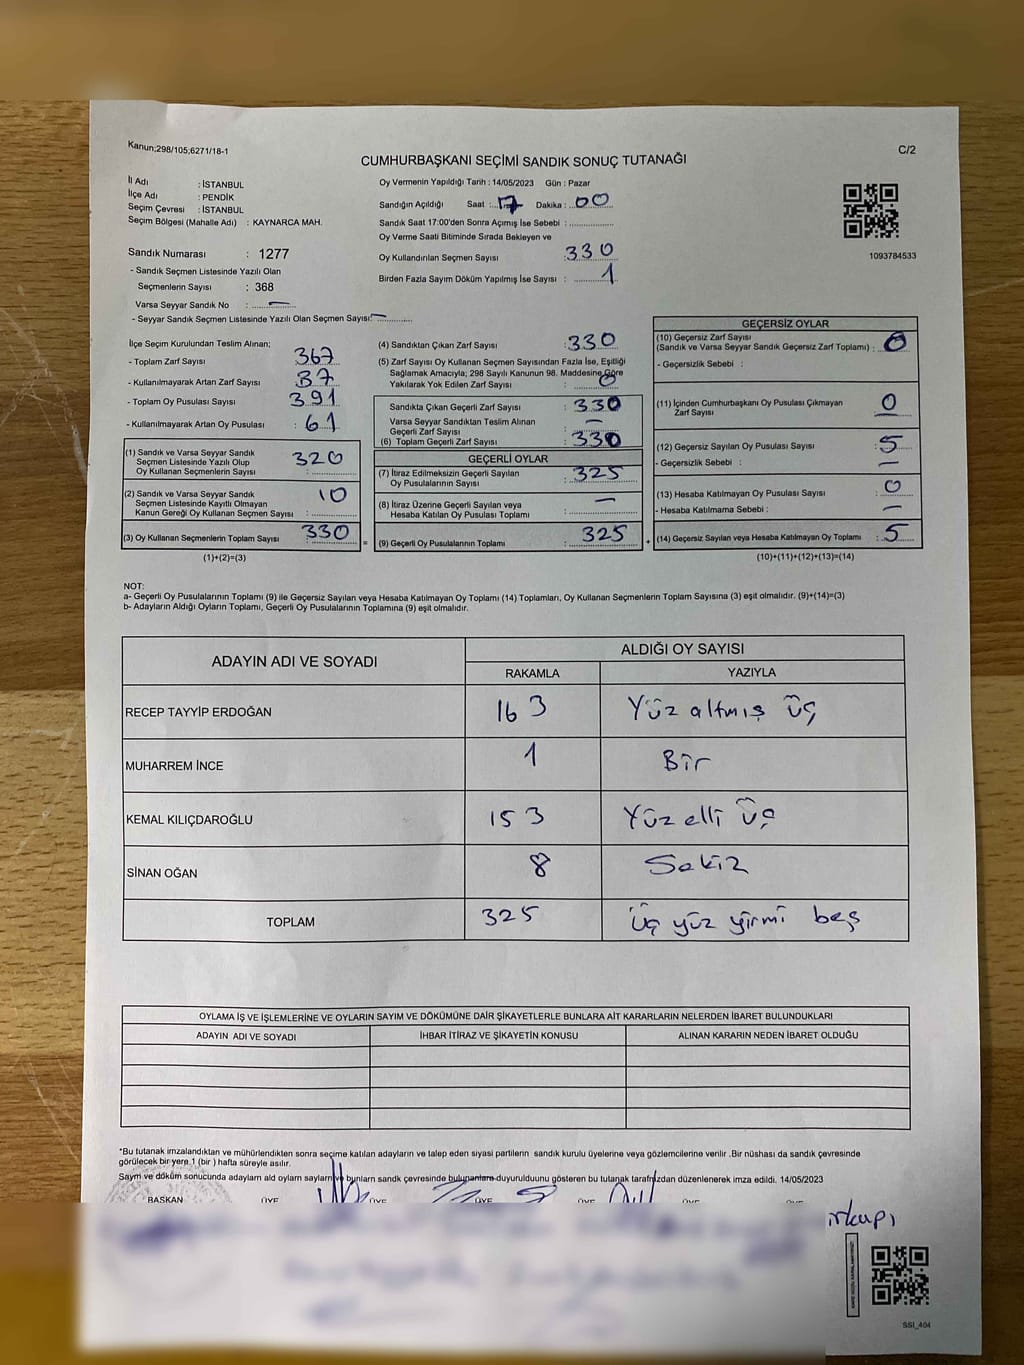 Kanun;298/105;6271/18-1
C/2
CUMHURBAŞKANI SEÇİMİ SANDIK SONUÇ TUTANAĞI
İl Adı : İSTANBUL
İlçe Adı : PENDİK
Seçim Çevresi : İSTANBUL
Seçim Bölgesi (Mahalle Adı) : KAYNARCA MAH.
Sandık Numarası : 1277
- Sandık Seçmen Listesinde Yazılı Olan
Seçmenlerin Sayısı : 368
Varsa Seyyar Sandık No : —
- Seyyar Sandık Seçmen Listesinde Yazılı Olan Seçmen Sayısı: —
Oy Vermenin Yapıldığı Tarih : 14/05/2023 Gün : Pazar
Sandığın Açıldığı Saat : 17 Dakika : 00
Sandık Saat 17:00'den Sonra Açımış İse Sebebi :
Oy Verme Saati Bitiminde Sırada Bekleyen ve
Oy Kullandırılan Seçmen Sayısı : 330
Birden Fazla Sayım Döküm Yapılmış İse Sayısı : 1
1093784533
İlçe Seçim Kurulundan Teslim Alınan;
- Toplam Zarf Sayısı : 367
- Kullanılmayarak Artan Zarf Sayısı : 37
- Toplam Oy Pusulası Sayısı : 391
- Kullanılmayarak Artan Oy Pusulası : 61
(1) Sandık ve Varsa Seyyar Sandık
Seçmen Listesinde Yazılı Olup
Oy Kullanan Seçmenlerin Sayısı : 320
(2) Sandık ve Varsa Seyyar Sandık
Seçmen Listesinde Kayıtlı Olmayan
Kanun Gereği Oy Kullanan Seçmen Sayısı : 10
(3) Oy Kullanan Seçmenlerin Toplam Sayısı : 330
(1)+(2)=(3)
(4) Sandıktan Çıkan Zarf Sayısı : 330
(5) Zarf Sayısı Oy Kullanan Seçmen Sayısından Fazla İse, Eşitliği
Sağlamak Amacıyla; 298 Sayılı Kanunun 98. Maddesine Göre
Yakılarak Yok Edilen Zarf Sayısı : 0
Sandıkta Çıkan Geçerli Zarf Sayısı : 330
Varsa Seyyar Sandıktan Teslim Alınan
Geçerli Zarf Sayısı : —
(6) Toplam Geçerli Zarf Sayısı : 330
GEÇERLİ OYLAR
(7) İtiraz Edilmeksizin Geçerli Sayılan
Oy Pusulalarının Sayısı : 325
(8) İtiraz Üzerine Geçerli Sayılan veya
Hesaba Katılan Oy Pusulası Toplamı : —
= (9) Geçerli Oy Pusulalarının Toplamı : 325
GEÇERSİZ OYLAR
(10) Geçersiz Zarf Sayısı
(Sandık ve Varsa Seyyar Sandık Geçersiz Zarf Toplamı) : 0
- Geçersizlik Sebebi :
(11) İçinden Cumhurbaşkanı Oy Pusulası Çıkmayan
Zarf Sayısı : 0
(12) Geçersiz Sayılan Oy Pusulası Sayısı : 5
- Geçersizlik Sebebi : —
(13) Hesaba Katılmayan Oy Pusulası Sayısı : 0
- Hesaba Katılmama Sebebi : —
+ (14) Geçersiz Sayılan veya Hesaba Katılmayan Oy Toplamı : 5
(10)+(11)+(12)+(13)=(14)
NOT:
a- Geçerli Oy Pusulalarının Toplamı (9) ile Geçersiz Sayılan veya Hesaba Katılmayan Oy Toplamı (14) Toplamları, Oy Kullanan Seçmenlerin Toplam Sayısına (3) eşit olmalıdır. (9)+(14)=(3)
b- Adayların Aldığı Oyların Toplamı, Geçerli Oy Pusulalarının Toplamına (9) eşit olmalıdır.
ADAYIN ADI VE SOYADI ALDIĞI OY SAYISI
RAKAMLA YAZIYLA
RECEP TAYYİP ERDOĞAN 163 Yüz altmış üç
MUHARREM İNCE 1 Bir
KEMAL KILIÇDAROĞLU 153 Yüz elli üç
SİNAN OĞAN 8 Sekiz
TOPLAM 325 Üç yüz yirmi beş
OYLAMA İŞ VE İŞLEMLERİNE VE OYLARIN SAYIM VE DÖKÜMÜNE DAİR ŞİKAYETLERLE BUNLARA AİT KARARLARIN NELERDEN İBARET BULUNDUKLARI
ADAYIN ADI VE SOYADI İHBAR İTİRAZ VE ŞİKAYETİN KONUSU ALINAN KARARIN NEDEN İBARET OLDUĞU
*Bu tutanak imzalandıktan ve mühürlendikten sonra seçime katılan adayların ve talep eden siyasi partilerin sandık kurulu üyelerine veya gözlemcilerine verilir .Bir nüshası da sandık çevresinde
görülecek bir yere 1 (bir ) hafta süreyle asılır.
Sayım ve döküm sonucunda adayların aldı oyların sayılarını ve bunların sandık çevresinde bulunanlara duyurulduunu gösteren bu tutanak tarafmızdan düzenlenerek imza edildi. 14/05/2023
BAŞKAN ÜYE ÜYE ÜYE ÜYE ÜYE ÜYE
SSI_404